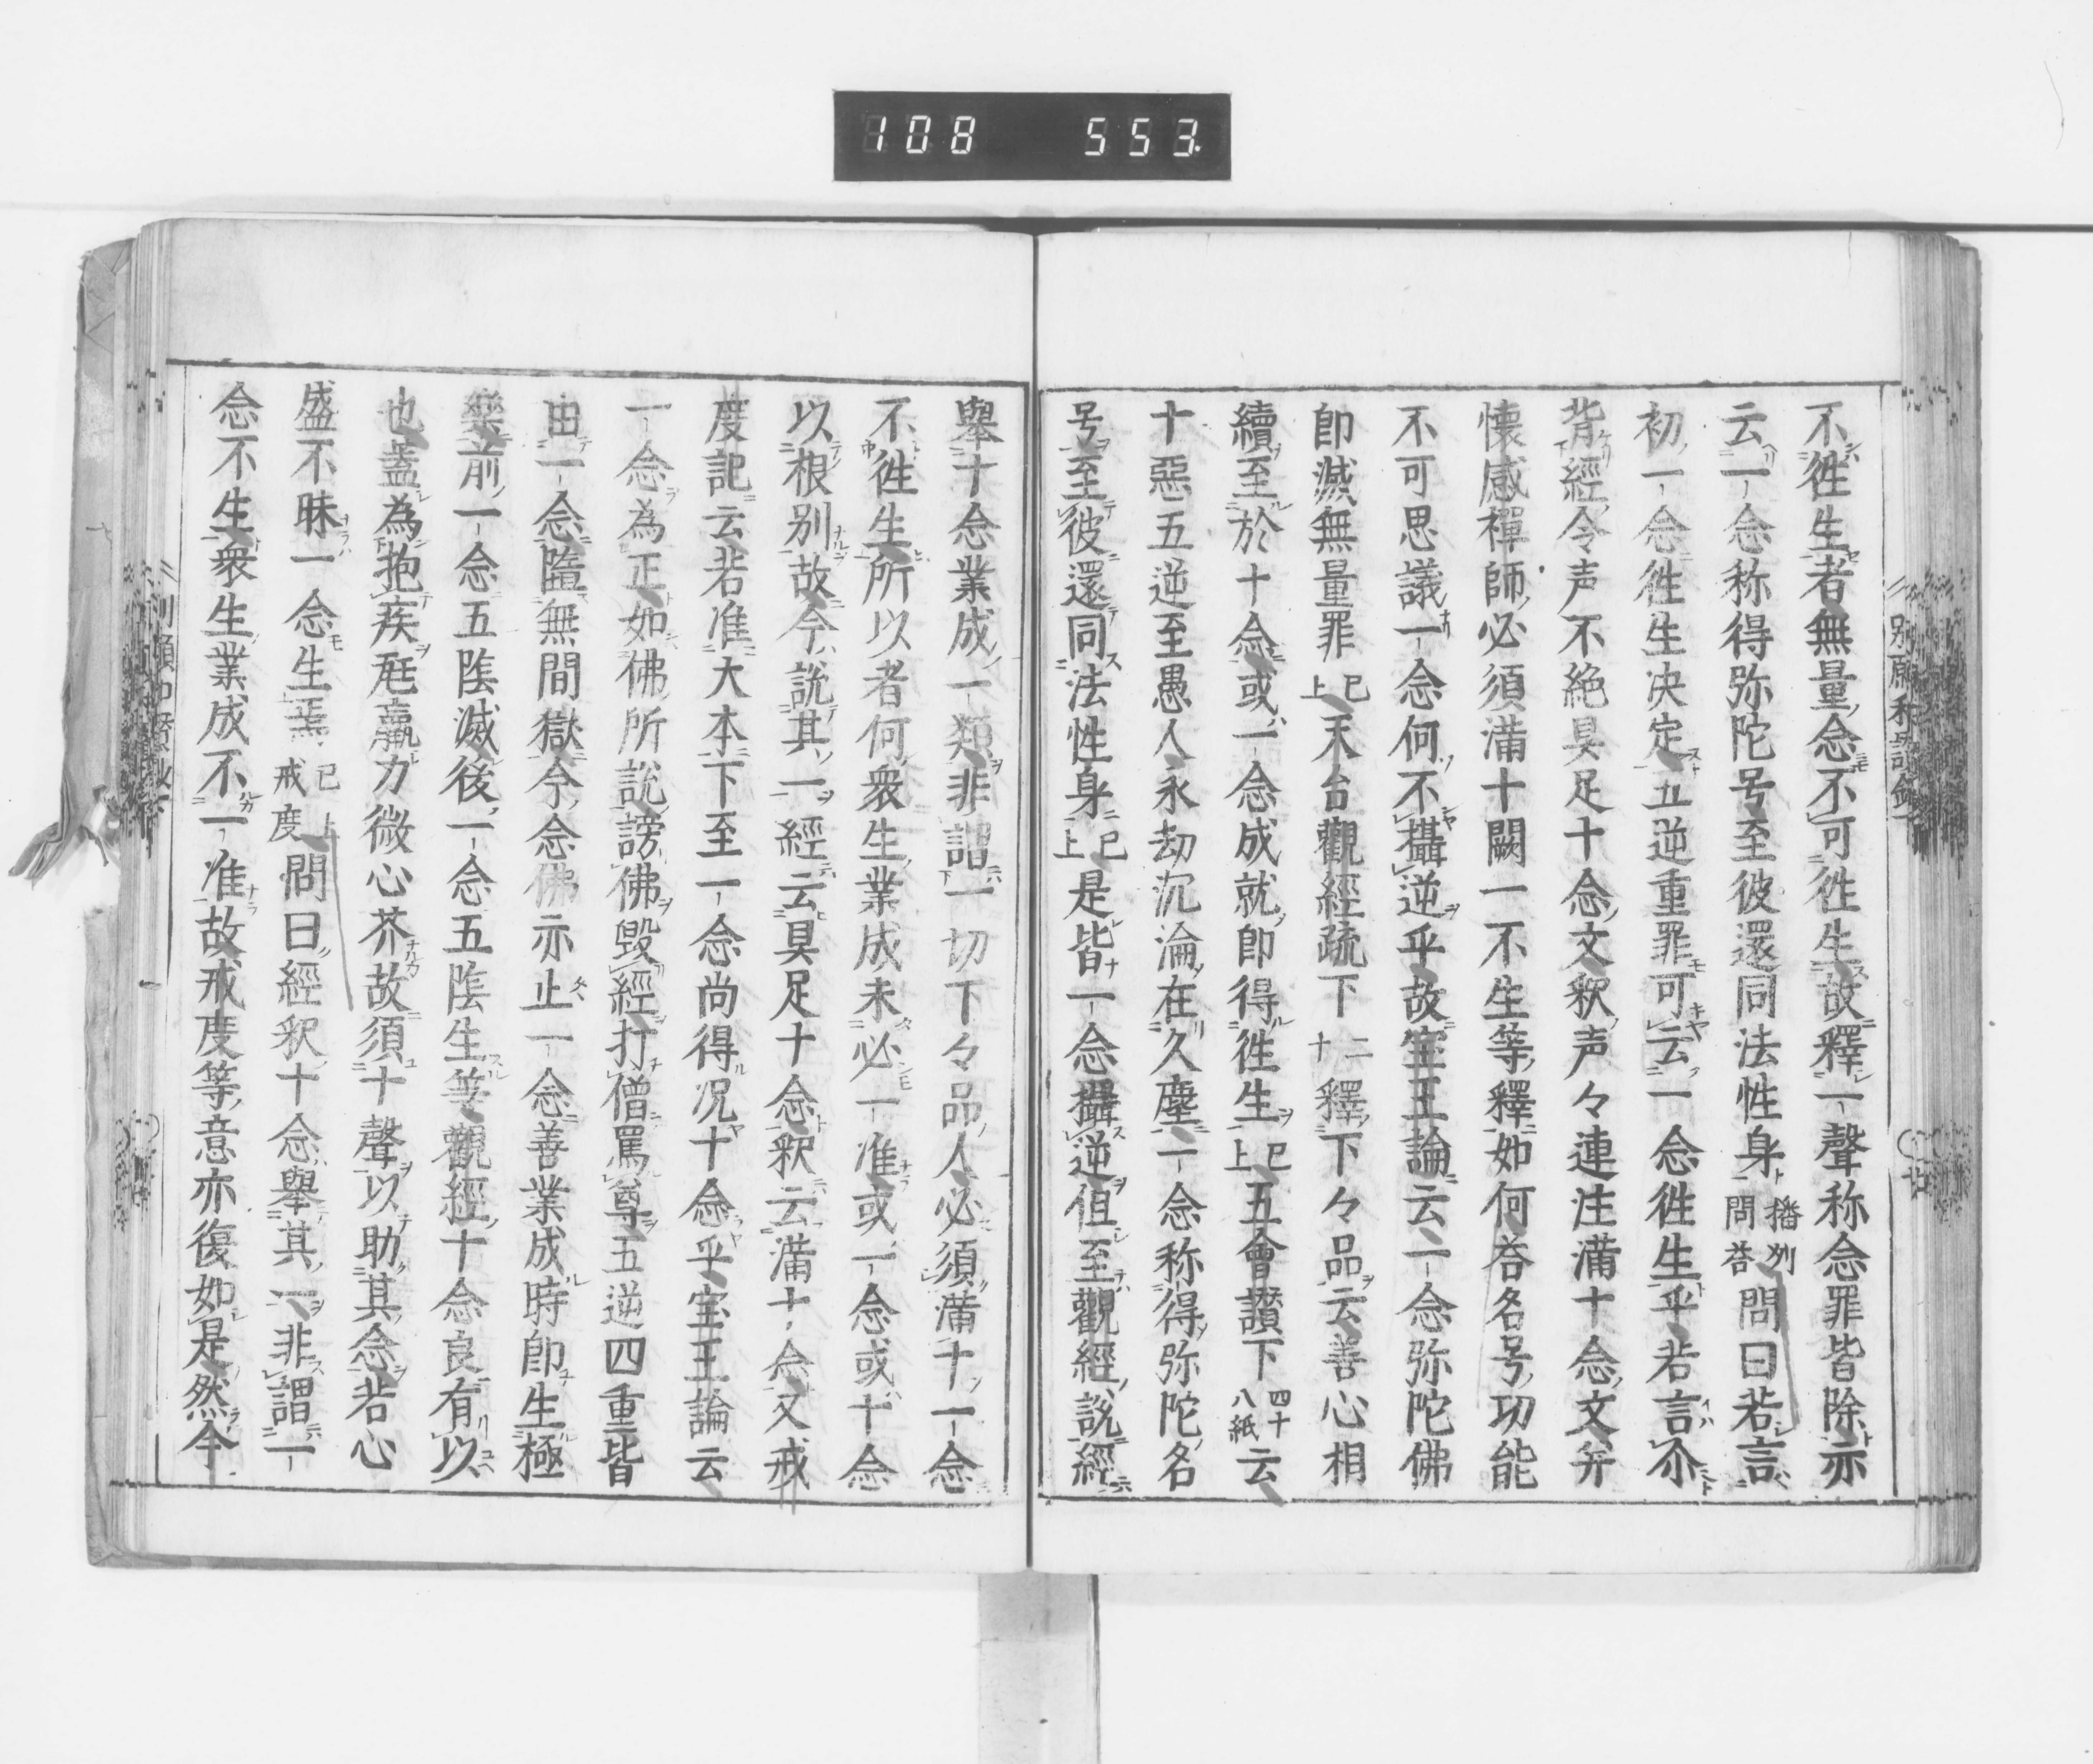 108 553
不徃生者無量念不可徃生故釋一聲称念罪皆除示
云一念称得弥陀号至彼還同法性身播州問荅問曰若言
初一念徃生决定五逆重罪可云一念徃生乎若言尒
背經令声不絶具足十念文釈声々連注滿十念文并
懐感禅師必須滿十闕一不生等釋如何荅名号功能
不可思議一念何不攝逆乎故宝王論云一念弥陀佛
即滅無量罪已上天台觀經疏下十二釋下々品云善心相
續至於十念或一念成就即得徃生已上五會讃下四十八紙云
十惡五逆至愚人永劫沉淪在久塵一念称得弥陀名
号至彼還同法性身已上是皆一念攝逆但至觀經說經
舉十念業成一類非謂一切下々品人必須滿十一念
不徃生所以者何衆生業成未必一准或一念或十念
以根别故今說其一經云具足十念釈云滿十念又戒
度記云若准大本下至一念尚得况十念乎宝王論云
一念為正如佛所說謗佛毀經打僧罵尊五逆四重皆
由一念墮無間獄今念佛亦止一念善業成時即生極
樂前一念五陰滅後一念五陰生等觀經十念良有以
也盖為抱疾尫羸力微心芥故須十聲以助其念若心
盛不昧一念生焉已上戒度問曰經釈十念舉其一非謂一
念不生衆生業成不一准故戒度等意亦復如是然今